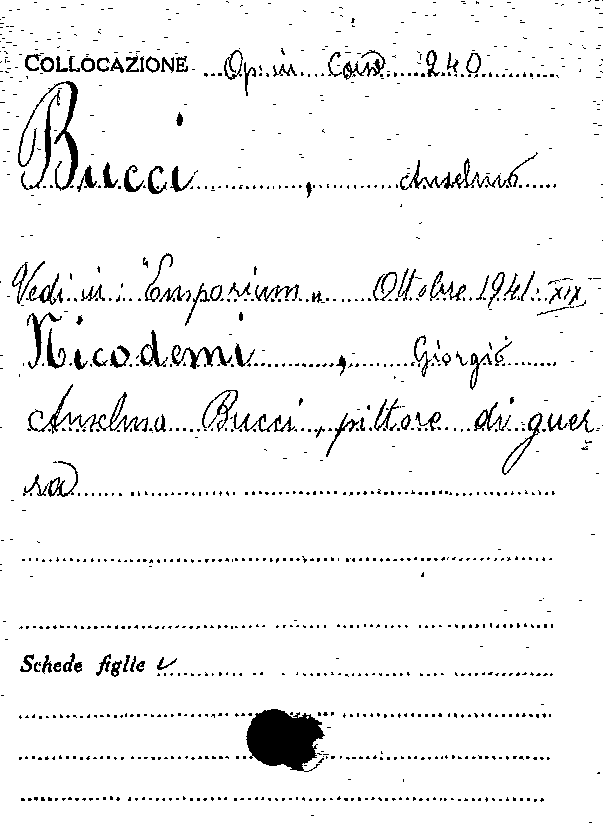 COLLOCAZIONE Op. in Cons 240
Bucci, Anselmo
Vedi in: "Emporium" Ottobre 1941. XIX
Nicodemi, Giorgio
Anselmo Bucci, pittore di guer-
ra
Schede figlie